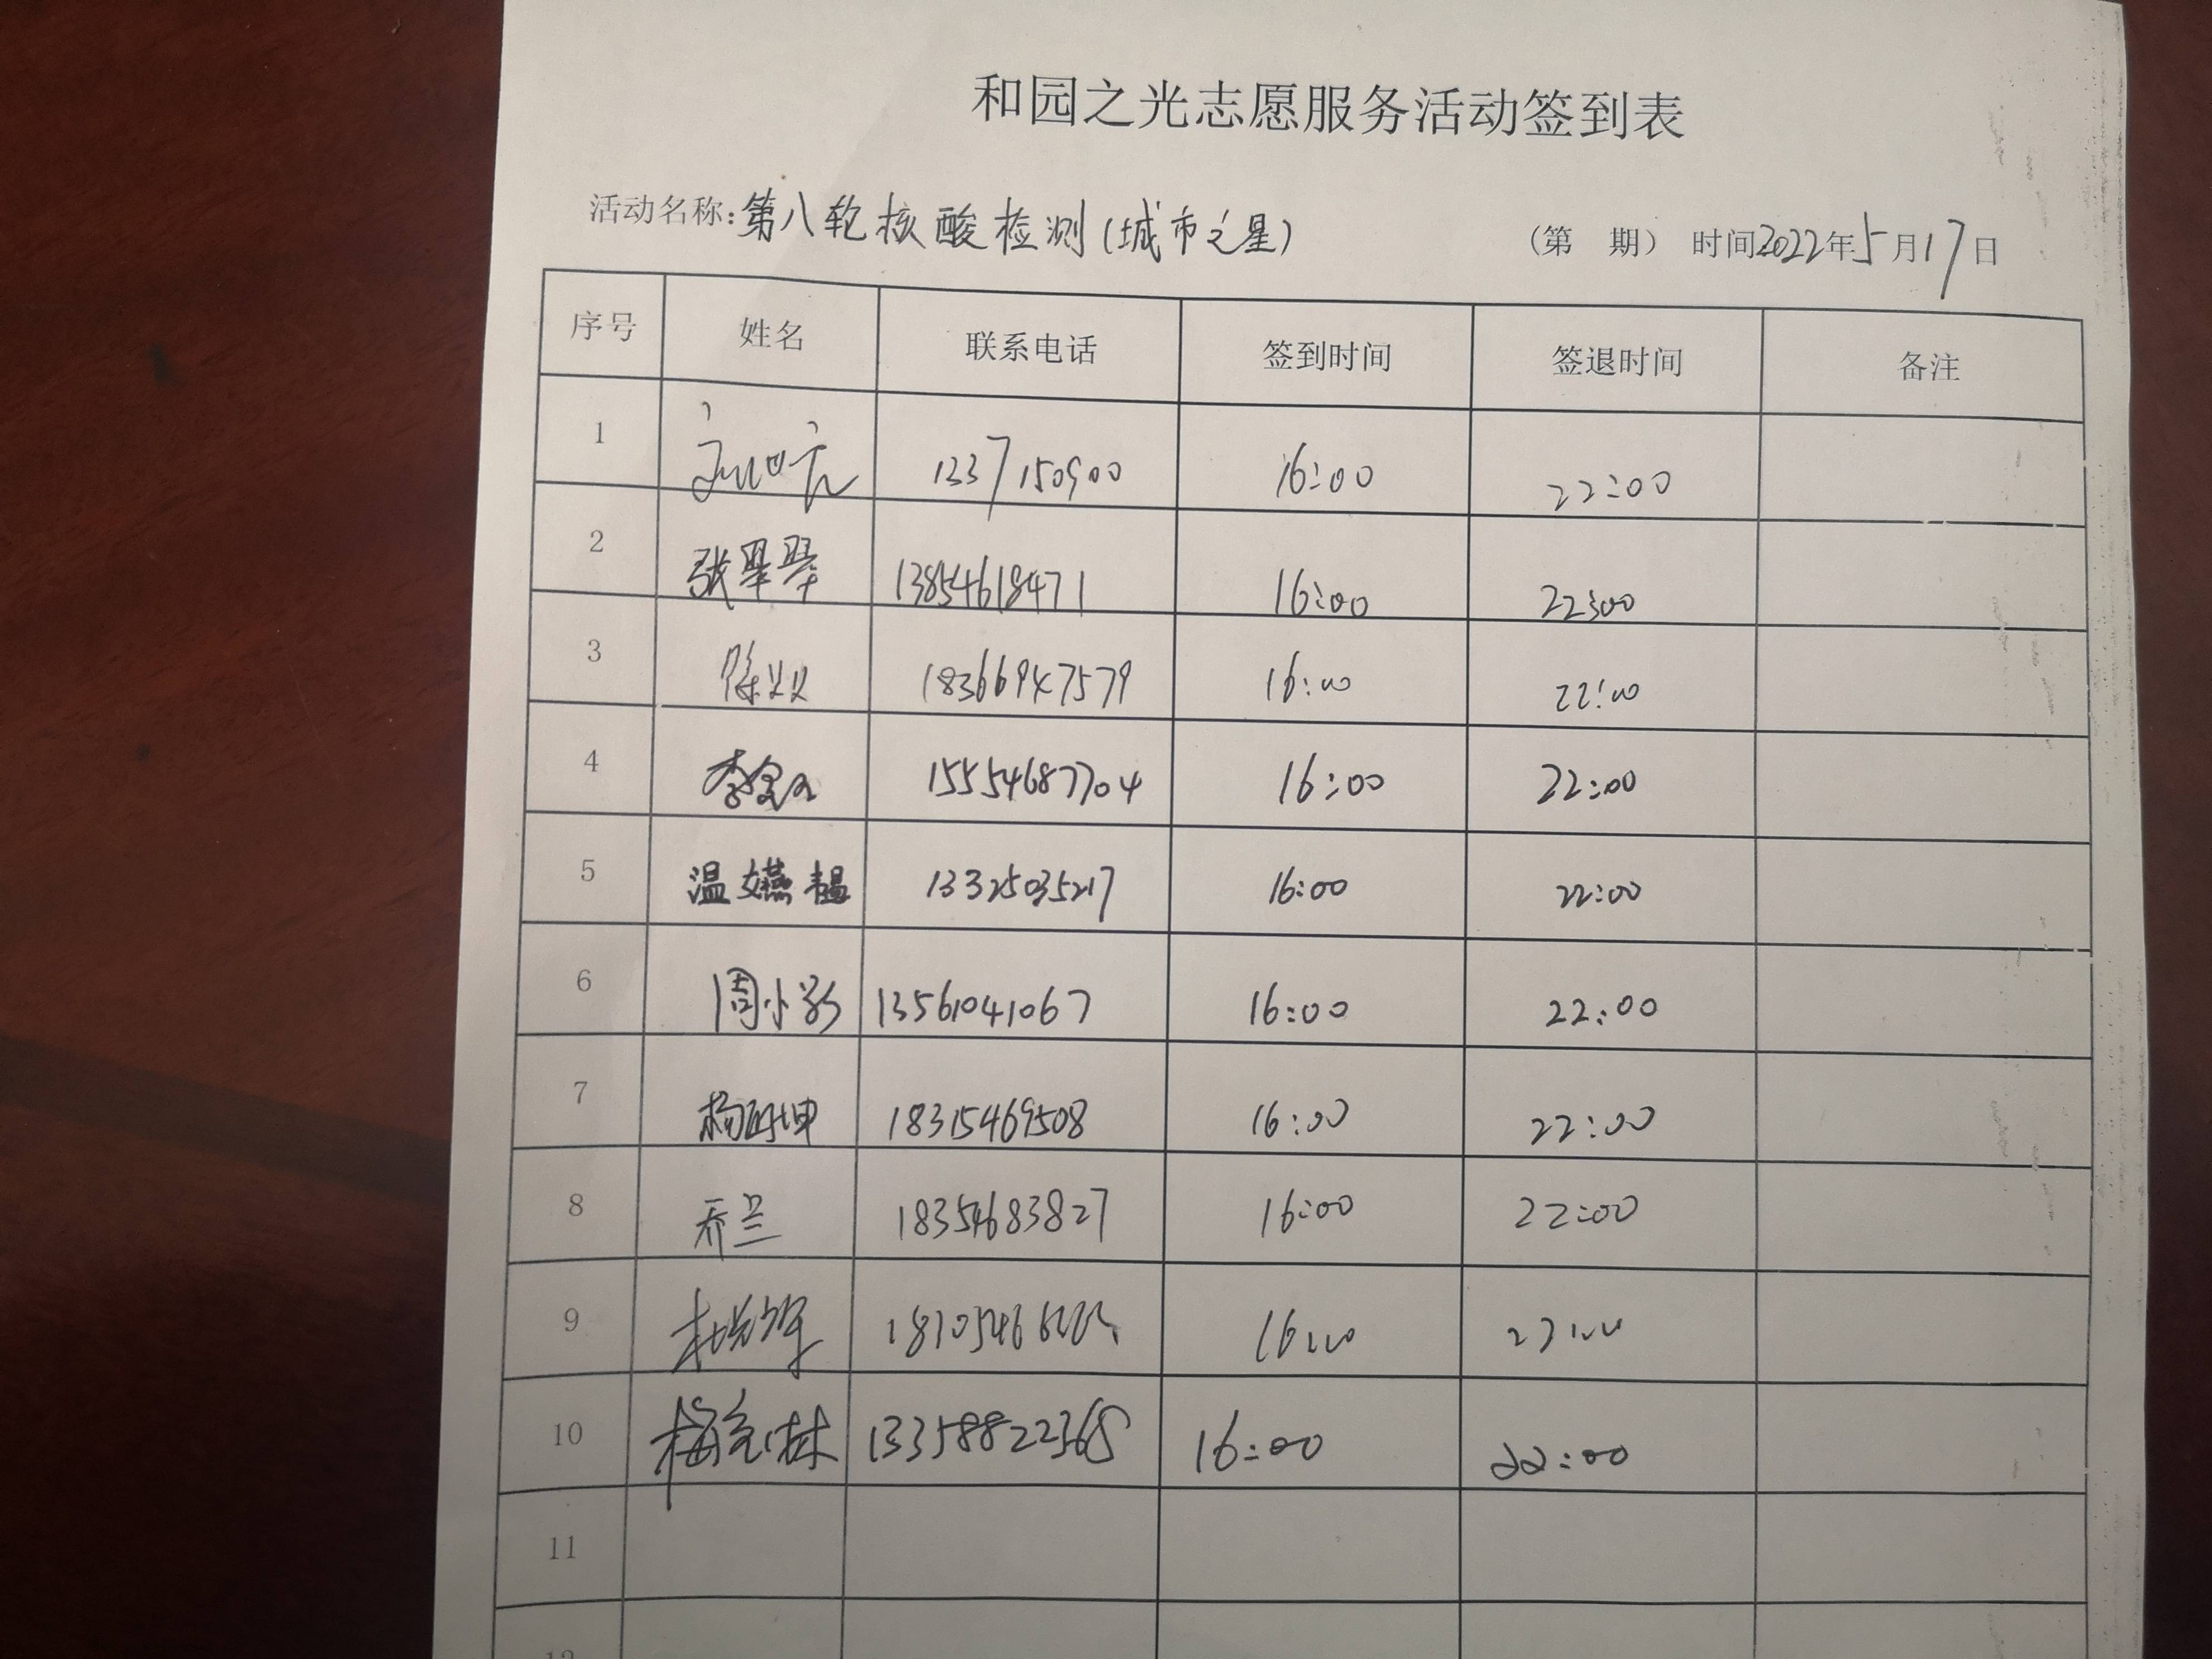 和园之光志愿服务活动签到表
活动名称:第八轮核酸检测(城市之星) (第 期) 时间2022年5月17日
序号 姓名 联系电话 签到时间 签退时间 备注
1 1337150900 16:00 22:00
2 张翠翠 13854618471 16:00 22:00
3 徐双双 18366947579 16:00 22:00
4 15554687704 16:00 22:00
5 温嬿韫 13325035217 16:00 22:00
6 周小彭 13561041067 16:00 22:00
7 18315469508 16:00 22:00
8 乔兰 18354683827 16:00 22:00
9 16:00
10 梅克林 13358822368 16:00 22:00
11